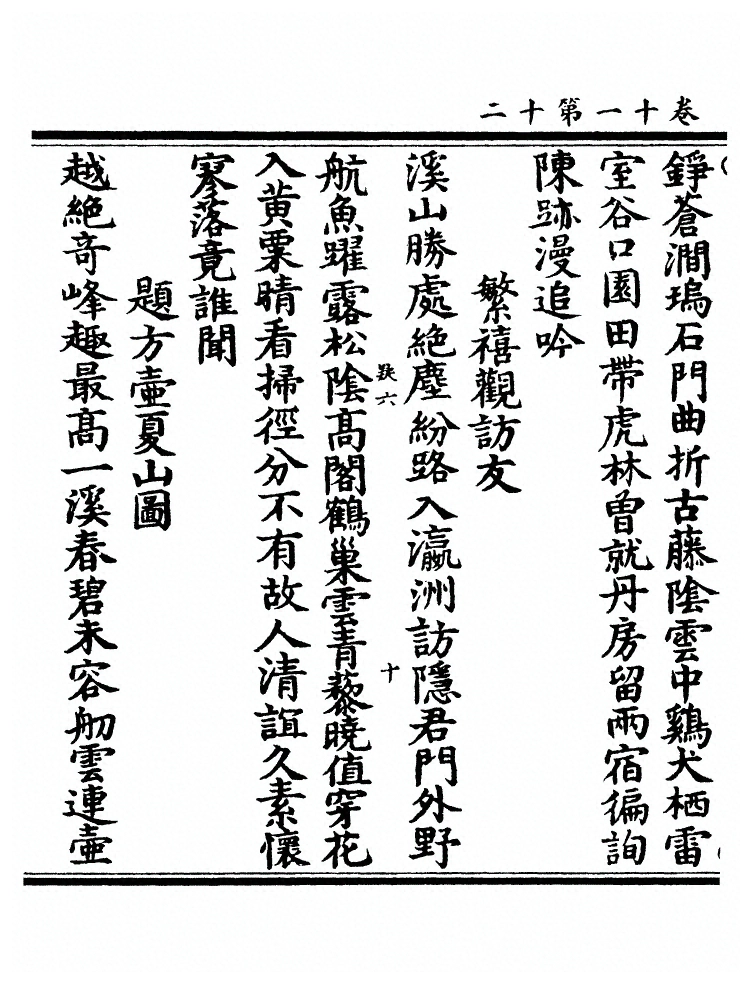 卷十一第十二
錚蒼澗瑦石門曲折古藤陰雲中鷄犬栖雷
室谷口園田帶虎林曾就丹房留兩宿徧詢
陳跡漫追吟
繁禧觀訪友
溪山勝處絶塵紛路入瀛洲訪隱君門外野
航魚躍露松陰高閣鶴巢雲青藜曉值穿花
入黄粟晴看掃徑分不有故人清誼久素懷
寥落竟誰聞
題方壷夏山圖
越絶奇峰趣最高一溪春碧未容舠雲連壷
羙六
十